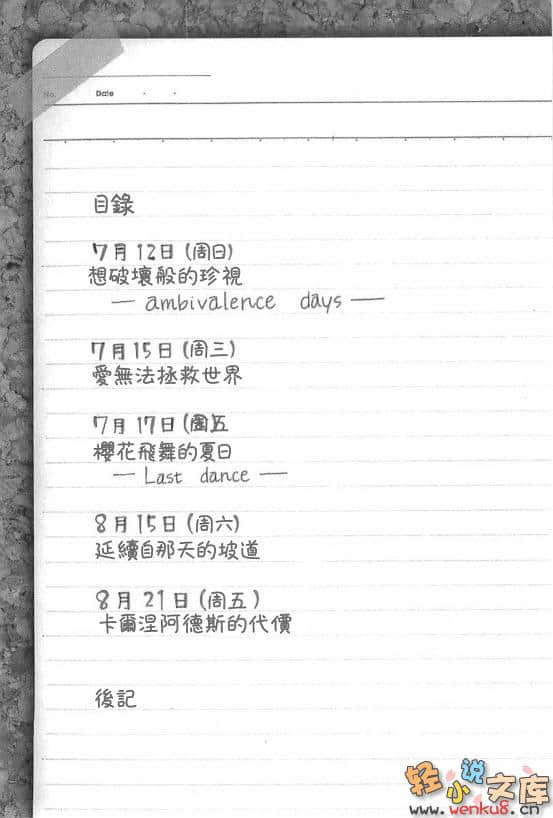 No.
Date
目錄
7月12日(周日)
想破壞般的珍視
— ambivalence days —
7月15日(周三)
愛無法拯救世界
7月17日(周五
櫻花飛舞的夏日
— Last dance —
8月15日(周六)
延續自那天的坡道
8月21日(周五)
卡爾涅阿德斯的代價
後記
轻小说文库
www.wenku8.cn